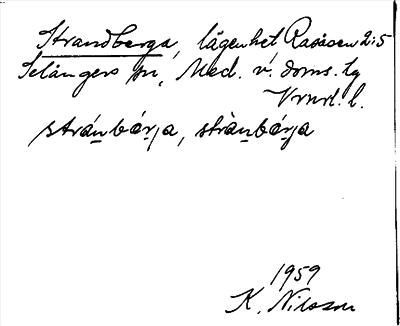 Strandberga, lägenhet Rasåsen 2:5
Selångers sn, Med. v. doms. tg
Vrml. l.
stránbár̲ja, strànbár̲ja
1959
K. Nilsson